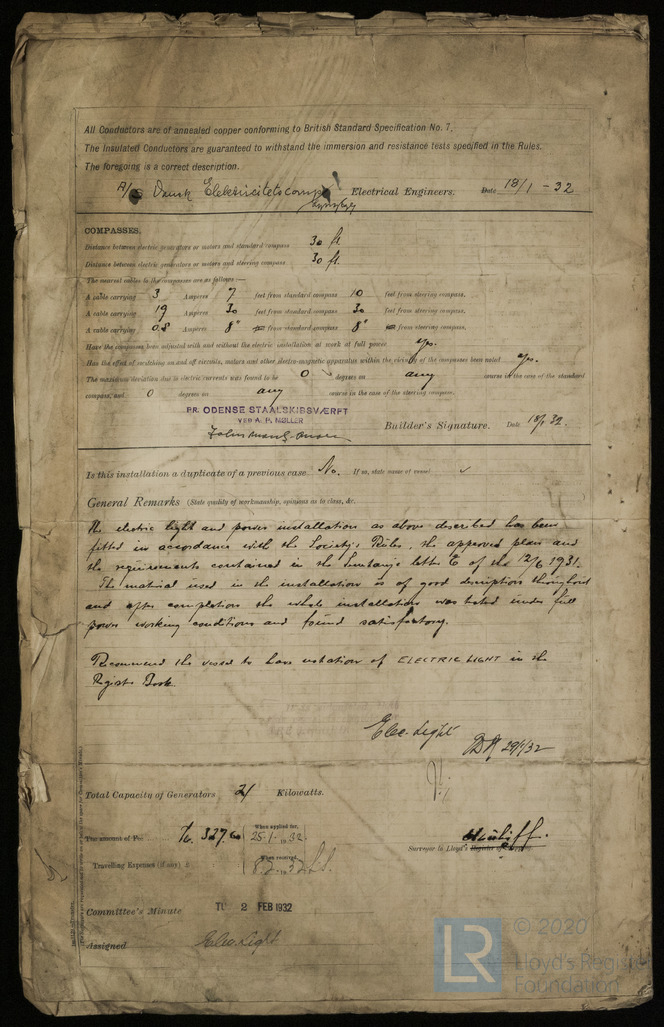 All Conductors are of annealed copper conforming to British Standard Specification No. 7.
The Insulated Conductors are guaranteed to withstand the immersion and resistance tests specified in the Rules.
The foregoing is a correct description.
A/S Dansk Elektricitetscomp Electrical Engineers. Date 18/1 - 32
COMPASSES.
Distance between electric generators or motors and standard compass 30 ft.
Distance between electric generators or motors and steering compass 30 ft.
The nearest cables to the compasses are as follows:—
A cable carrying 3 Amperes 7 feet from standard compass 10 feet from steering compass.
A cable carrying 19 Amperes 30 feet from standard compass 30 feet from steering compass.
A cable carrying 0.8 Amperes 8" from standard compass 8" from steering compass.
Have the compasses been adjusted with and without the electric installation at work at full power yes.
Has the effect of switching on and off circuits, motors and other electro-magnetic apparatus within the vicinity of the compasses been noted yes.
The maximum deviation due to electric currents was found to be 0 degrees on any course in the case of the standard
compass, and 0 degrees on any course in the case of the steering compass.
PR. ODENSE STAALSKIBSVÆRFT
VED A. P. MØLLER
Builder's Signature. Date 18/1 32.
Is this installation a duplicate of a previous case No. If so, state name of vessel
General Remarks (State quality of workmanship, opinions as to class, &c.
The electric light and power installation as above described has been
fitted in accordance with the Society's Rules, the approved plans and
the requirements contained in the Secretary's letter E of the 12/6 1931.
The material used in the installation is of good description throughout
and after completion the whole installation was tested under full
power working conditions and found satisfactory.
Recommend the vessel to have notation of ELECTRIC LIGHT in the
Register Book.
Elec. Light
29/1/32
Total Capacity of Generators 21 Kilowatts.
The amount of Fee Kr. 327.60 When applied for, 25.1.1932.
Travelling Expenses (if any) £ When received,
Surveyor to Lloyd's Register of
Committee's Minute TU 2 FEB 1932
Assigned Elec Light
LR © 2020
Lloyd's Register
Foundation